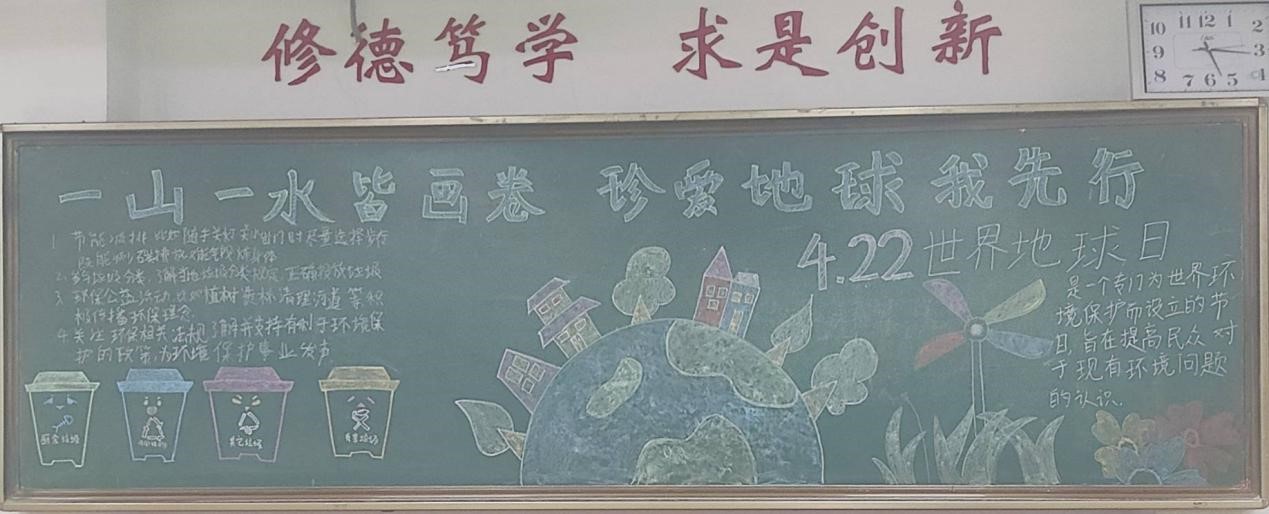 修德笃学 求是创新
10 11 12 1 2
9 3
8 7 6 5 4
一山一水皆画卷 珍爱地球我先行
1. 节能减排 比如随手关灯 出门时尽量选择步行
既能 又能锻炼身体
2. 垃圾分类，了解当地垃圾分类规定，正确投放垃圾
3. 环保公益活动，比如植树造林 清理河道等 积
极传播环保理念
4. 关注环保相关法规，了解并支持有利于环境保
护的政策，为环境保护事业发声
厨余垃圾
其它垃圾
有害垃圾
4.22世界地球日
是一个专门为世界环
境保护而设立的节
日，旨在提高民众对
于现有环境问题
的认识。